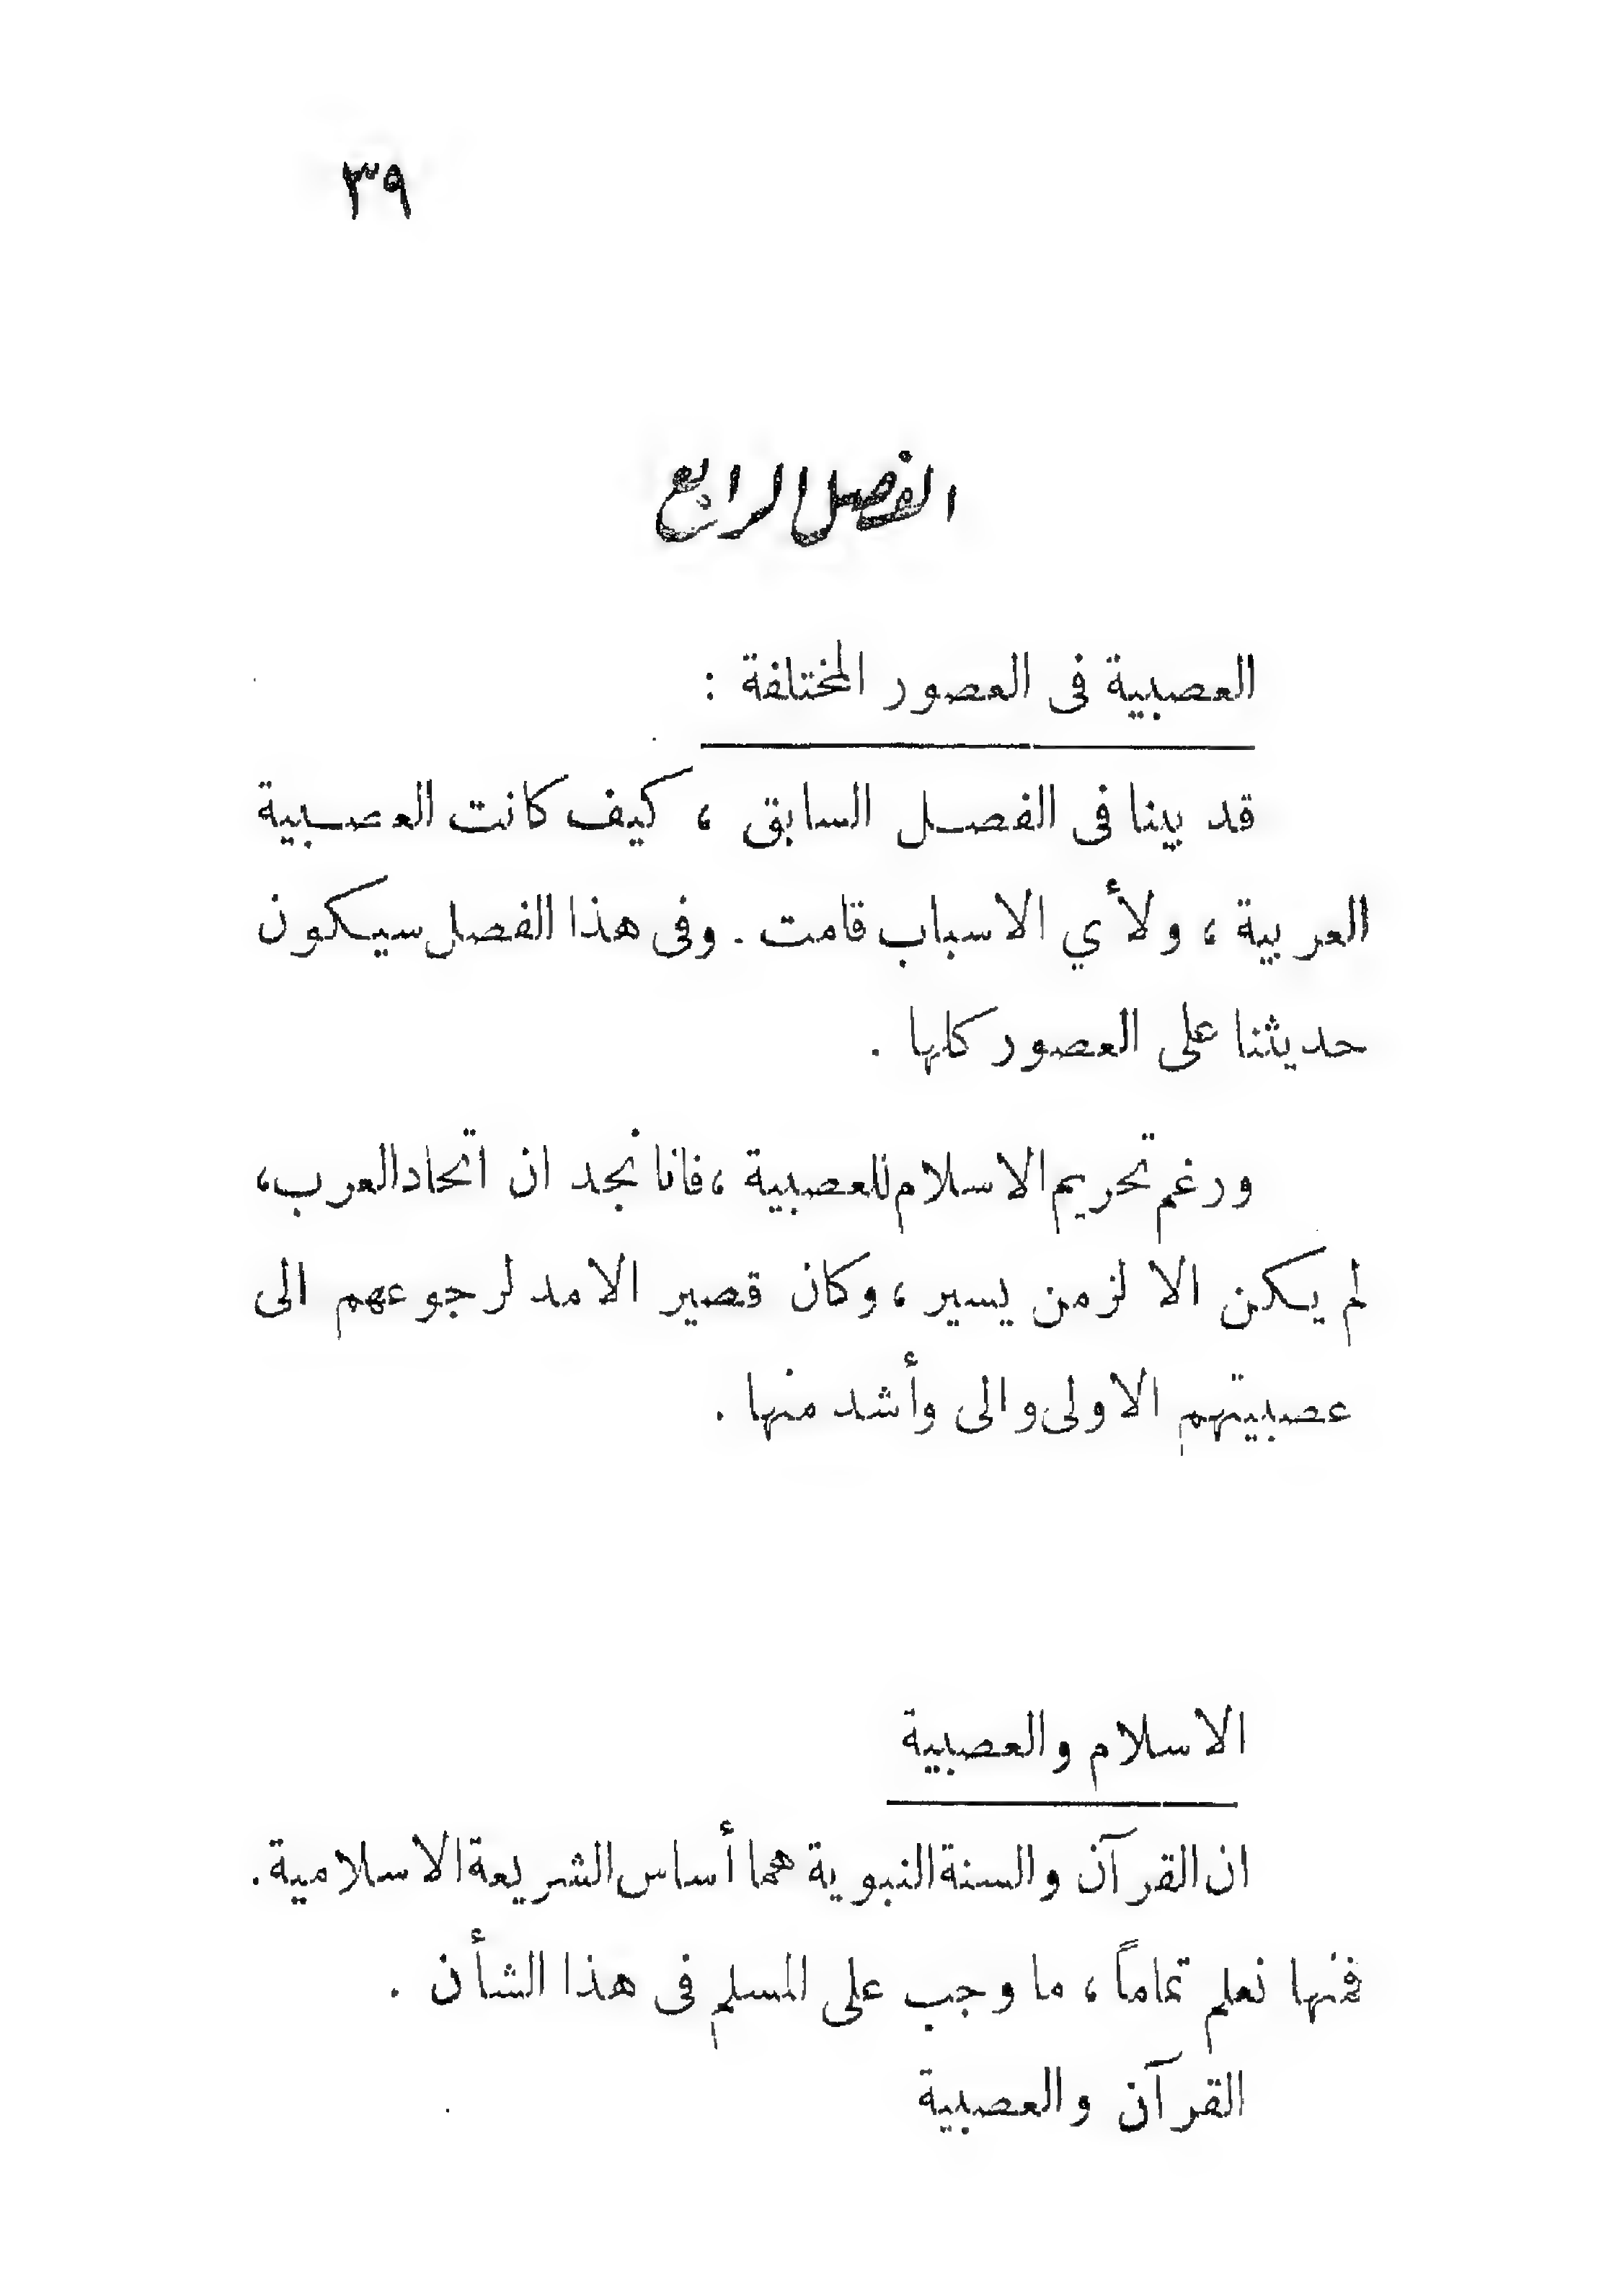 ٣٩
الفصل الرابع
العصبية فى العصور المختلفة :
قد بينا فى الفصل السابق ، كيف كانت العصبية
العربية ، ولأي الاسباب قامت . وفى هذا الفصل سيكون
حديثنا على العصور كلها .
ورغم تحريم الاسلام للعصبية ، فانا نجد ان اتحاد العرب ،
لم يكن الا لزمن يسير ، وكان قصير الامد لرجوعهم الى
عصبيتهم الاولى والى وأشد منها .
الاسلام والعصبية
ان القرآن والسنة النبوية هما أساس الشريعة الاسلامية .
فمنها نعلم تماماً ، ما وجب على المسلم فى هذا الشأن .
القرآن والعصبية